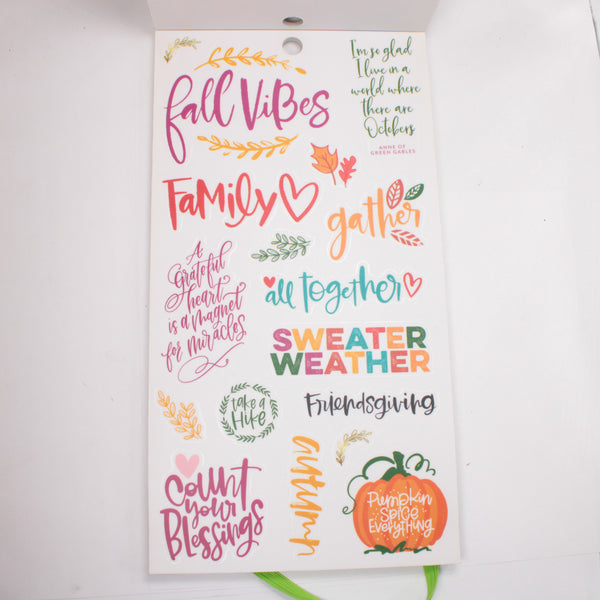 fall ViBes
I'm so glad
I live in a
world where
there are
Octobers
ANNE OF
GREEN GABLES
FaMily
gather
A
Grateful
heart
is a magnet
for miracles
all together
SWEATER
WEATHER
take a
Hike
Friendsgiving
Count
your
Blessings
autumn
Pumpkin
Spice
Everything